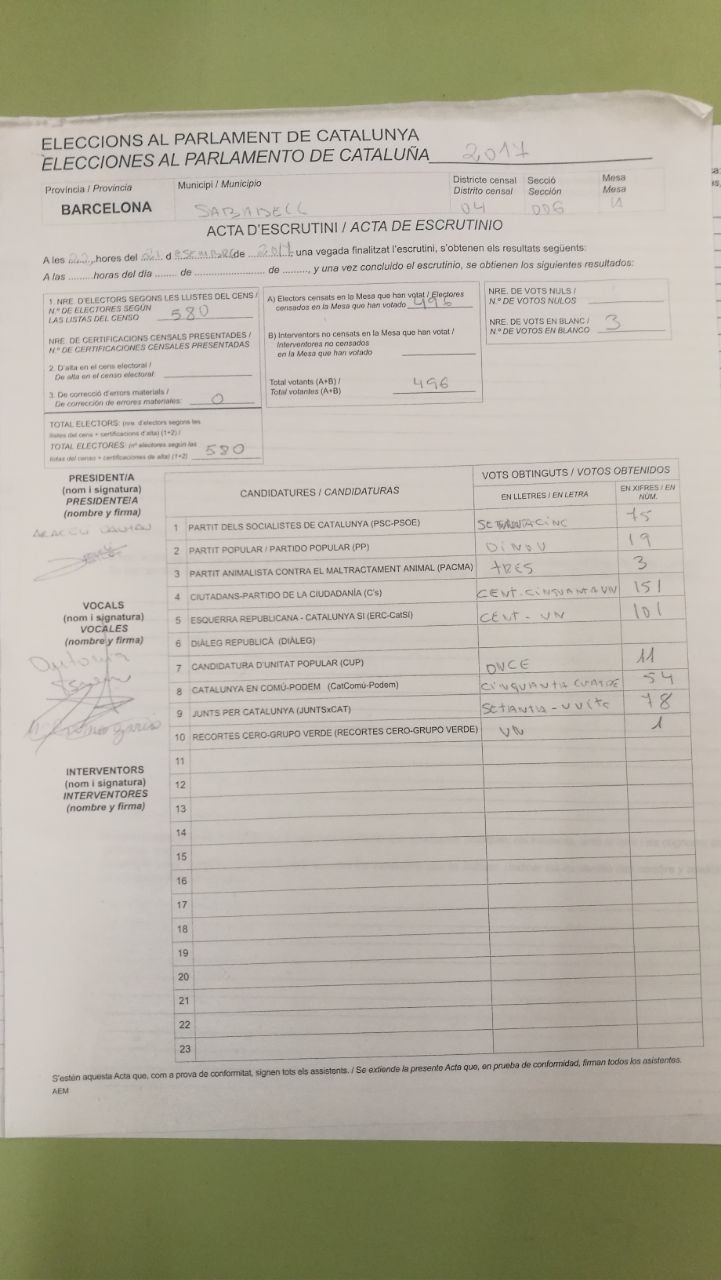 ELECCIONS AL PARLAMENT DE CATALUNYA
ELECCIONES AL PARLAMENTO DE CATALUÑA 2017
Provincia / Provincia
BARCELONA
Municipi / Municipio
SABADELL
Districte censal
Distrito censal
04
Secció
Sección
006
Mesa
Mesa
U
ACTA D'ESCRUTINI / ACTA DE ESCRUTINIO
A les 22 hores del 21 d DESEMBRE de 2017 una vegada finalitzat l'escrutini, s'obtenen els resultats següents:
A las ........ horas del día ....... de ........................ de ........, y una vez concluido el escrutinio, se obtienen los siguientes resultados:
1. NRE. D'ELECTORS SEGONS LES LLISTES DEL CENS /
N.º DE ELECTORES SEGÚN
LAS LISTAS DEL CENSO 580
NRE. DE CERTIFICACIONS CENSALS PRESENTADES /
N.º DE CERTIFICACIONES CENSALES PRESENTADAS
2. D'alta en el cens electoral /
De alta en el censo electoral:
3. De correcció d'errors materials /
De corrección de errores materiales: 0
TOTAL ELECTORS: (nre. d'electors segons les
llistes del cens + certificacions d'alta) (1+2) /
TOTAL ELECTORES: (nº electores según las
listas del censo + certificaciones de alta) (1+2) 580
A) Electors censats en la Mesa que han votat / Electores
censados en la Mesa que han votado 496
B) Interventors no censats en la Mesa que han votat /
Interventores no censados
en la Mesa que han votado
Total votants (A+B) /
Total votantes (A+B) 496
NRE. DE VOTS NULS /
N.º DE VOTOS NULOS
NRE. DE VOTS EN BLANC /
N.º DE VOTOS EN BLANCO 3
PRESIDENT/A
(nom i signatura)
PRESIDENTE/A
(nombre y firma)
VOCALS
(nom i signatura)
VOCALES
(nombre y firma)
INTERVENTORS
(nom i signatura)
INTERVENTORES
(nombre y firma)
CANDIDATURES / CANDIDATURAS
VOTS OBTINGUTS / VOTOS OBTENIDOS
EN LLETRES / EN LETRA
EN XIFRES / EN NÚM.
1 PARTIT DELS SOCIALISTES DE CATALUNYA (PSC-PSOE) SETANTACINC 75
2 PARTIT POPULAR / PARTIDO POPULAR (PP) DINOU 19
3 PARTIT ANIMALISTA CONTRA EL MALTRACTAMENT ANIMAL (PACMA) TRES 3
4 CIUTADANS-PARTIDO DE LA CIUDADANÍA (C's) CENT-CINQUANTA UN 151
5 ESQUERRA REPUBLICANA - CATALUNYA SÍ (ERC-CatSÍ) CENT - UN 101
6 DIÀLEG REPUBLICÀ (DIÀLEG)
7 CANDIDATURA D'UNITAT POPULAR (CUP) ONCE 11
8 CATALUNYA EN COMÚ-PODEM (CatComú-Podem) CINQUANTA CUATRE 54
9 JUNTS PER CATALUNYA (JUNTSxCAT) SETANTA-VUITC 78
10 RECORTES CERO-GRUPO VERDE (RECORTES CERO-GRUPO VERDE) UN 1
11
12
13
14
15
16
17
18
19
20
21
22
23
S'estén aquesta Acta que, com a prova de conformitat, signen tots els assistents. / Se extiende la presente Acta que, en prueba de conformidad, firman todos los asistentes.
AEM